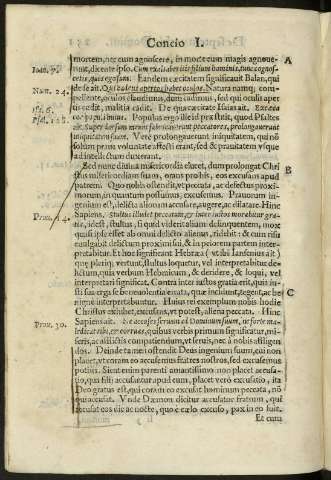 Concio I.
mortem, nec eum agnoscere, in morte eum magis agnoue-
Ioan. 7. runt, dicente ipso. Cum exaltaueritis filium hominis, tunc cognos-
cetis, quia ego sum. Eandem cæcitatem significauit Balan, qui
Num. 24. de se ait. Qui oculos apertos habet oculos. Natura namq; com-
pellente, oculos claudimus, dum cadimus, sed qui oculis aper
Isa. 6. tis cadit, malitia cadit. De qua cæcitate Isaias ait. Excæca
Psal. 128. cor populi huius. Populus ergo ille id præstitit, quod Psaltes
ait. Super dorsum meum fabricauerunt peccatores, prolongauerunt
iniquitatem suam. Vere prolongauerunt iniquitatem, qui nō
solum prima voluntate affecti erant, sed & prauitatem vsque
ad intellectum duxerant.
Sed nunc diuina misericordia eluxit, dum prolongat Chri B
stus misericordiam suam, orans pro his, eos excusans apud
patrem. Quo nobis ostendit, vt peccata, ac defectus proxi-
morum, in quantum possumus, excusemus. Prauorum in-
genium est, delicta alionum accusare, augere, ac efflare. Hinc
Prou. 14. Sapiens. Stultus illudet peccatum, & inter iustos morabitur gra-
tia, idest, stultus, si quid viderit alium delinquentem, mox
quasi ipse esset ab omni delicto alienus, ridebit: & cum risu
euulgabit delictum proximi sui, & in peiorem partem inter-
pretabitur. Et hoc significant Hebræa (vt ibi Iansenius ait)
quę pleriq; vertunt, stultus loquetur, vel interpretabitur de-
lictum, quia verbum Hebraicum, & deridere, & loqui, vel
interpretari significat. Contra inter iustos gratia erit, quia iu-
sti sua erga se beneuolentia mota, quæ incidunt, tegent, ac be C
nignè interpretabuntur. Huius rei exemplum nobis hodie
Christus exhibet, excusans, vt potest, aliena peccata. Hinc
Prou. 30. Sapiens ait. Ne accuses seruum ad Dominum suum, ne forte ma-
ledicat tibi, et corruas, quibus verbis primum significatur, mi-
seris, ac afflictis compatiendum, vt seruis, nec à nobis affligen
dos. Deinde tamen ostendit Deus ingenium suum, cui non
placet, vt coram eo accusemus fratres nostros, sed excusemus
potius. Sicut enim parenti amantissimo non placet accusa-
tio, qua filij accusantur apud eum, placet verò excusatio, ita
Deo gratus est, qui coram eo excusat hominum peccata, nō
qui accusat. Vnde Dæmon dicitur accusator fratrum, qui
accusat eos die ac nocte, quo è cælo excuso, pax in eo fuit.
Et cum